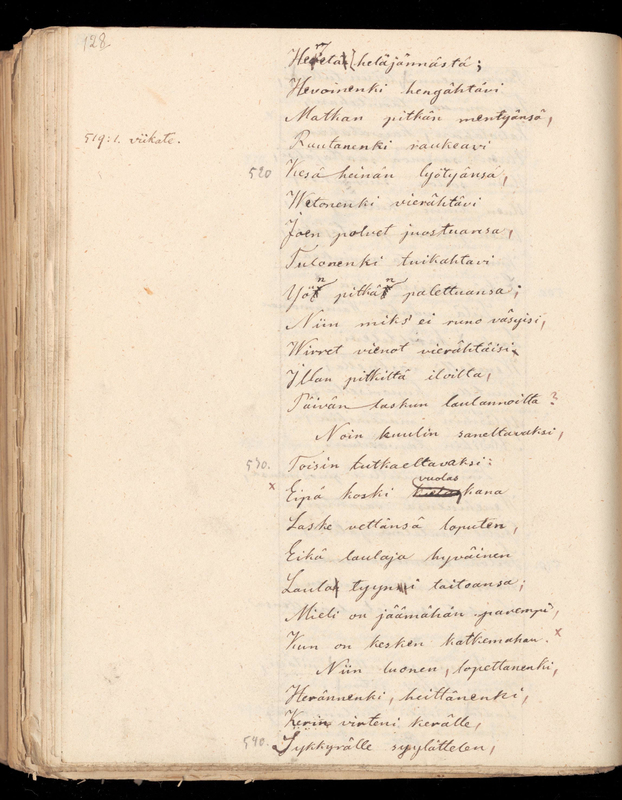 128
heläjännästä;
Hevoinenki hengähtävi
Mathan pitkän mentyänsä,
519:1. viikate.
Rautanenki raukeavi
520 Kesä heinän lyötyänsä,
Wetonenki vierähtävi
Joen polvet juostuansa,
Tulonenki tuikahtavi
Yön pitkän palettuansa;
Niin miks' ei runo väsyisi,
Wirret vienot vierähtäisi
Illan pitkiltä iloilta,
Päivän laskun laulannoilta?
Noin kuulin saneltavaksi,
530. Toisin tutkaeltavaksi:
x Eipä koski vuolaskana
Laske vettänsä loputen,
Eikä laulaja hyväinen
Laula tyyni taitoansa;
Mieli on jäämähän parempi,
Kun on kesken katkemahan. x
Niin luonen, lopettanenki,
Herännenki, heittänenki,
Kerin virteni kerälle,
540. Sykkyrälle syylättelen,